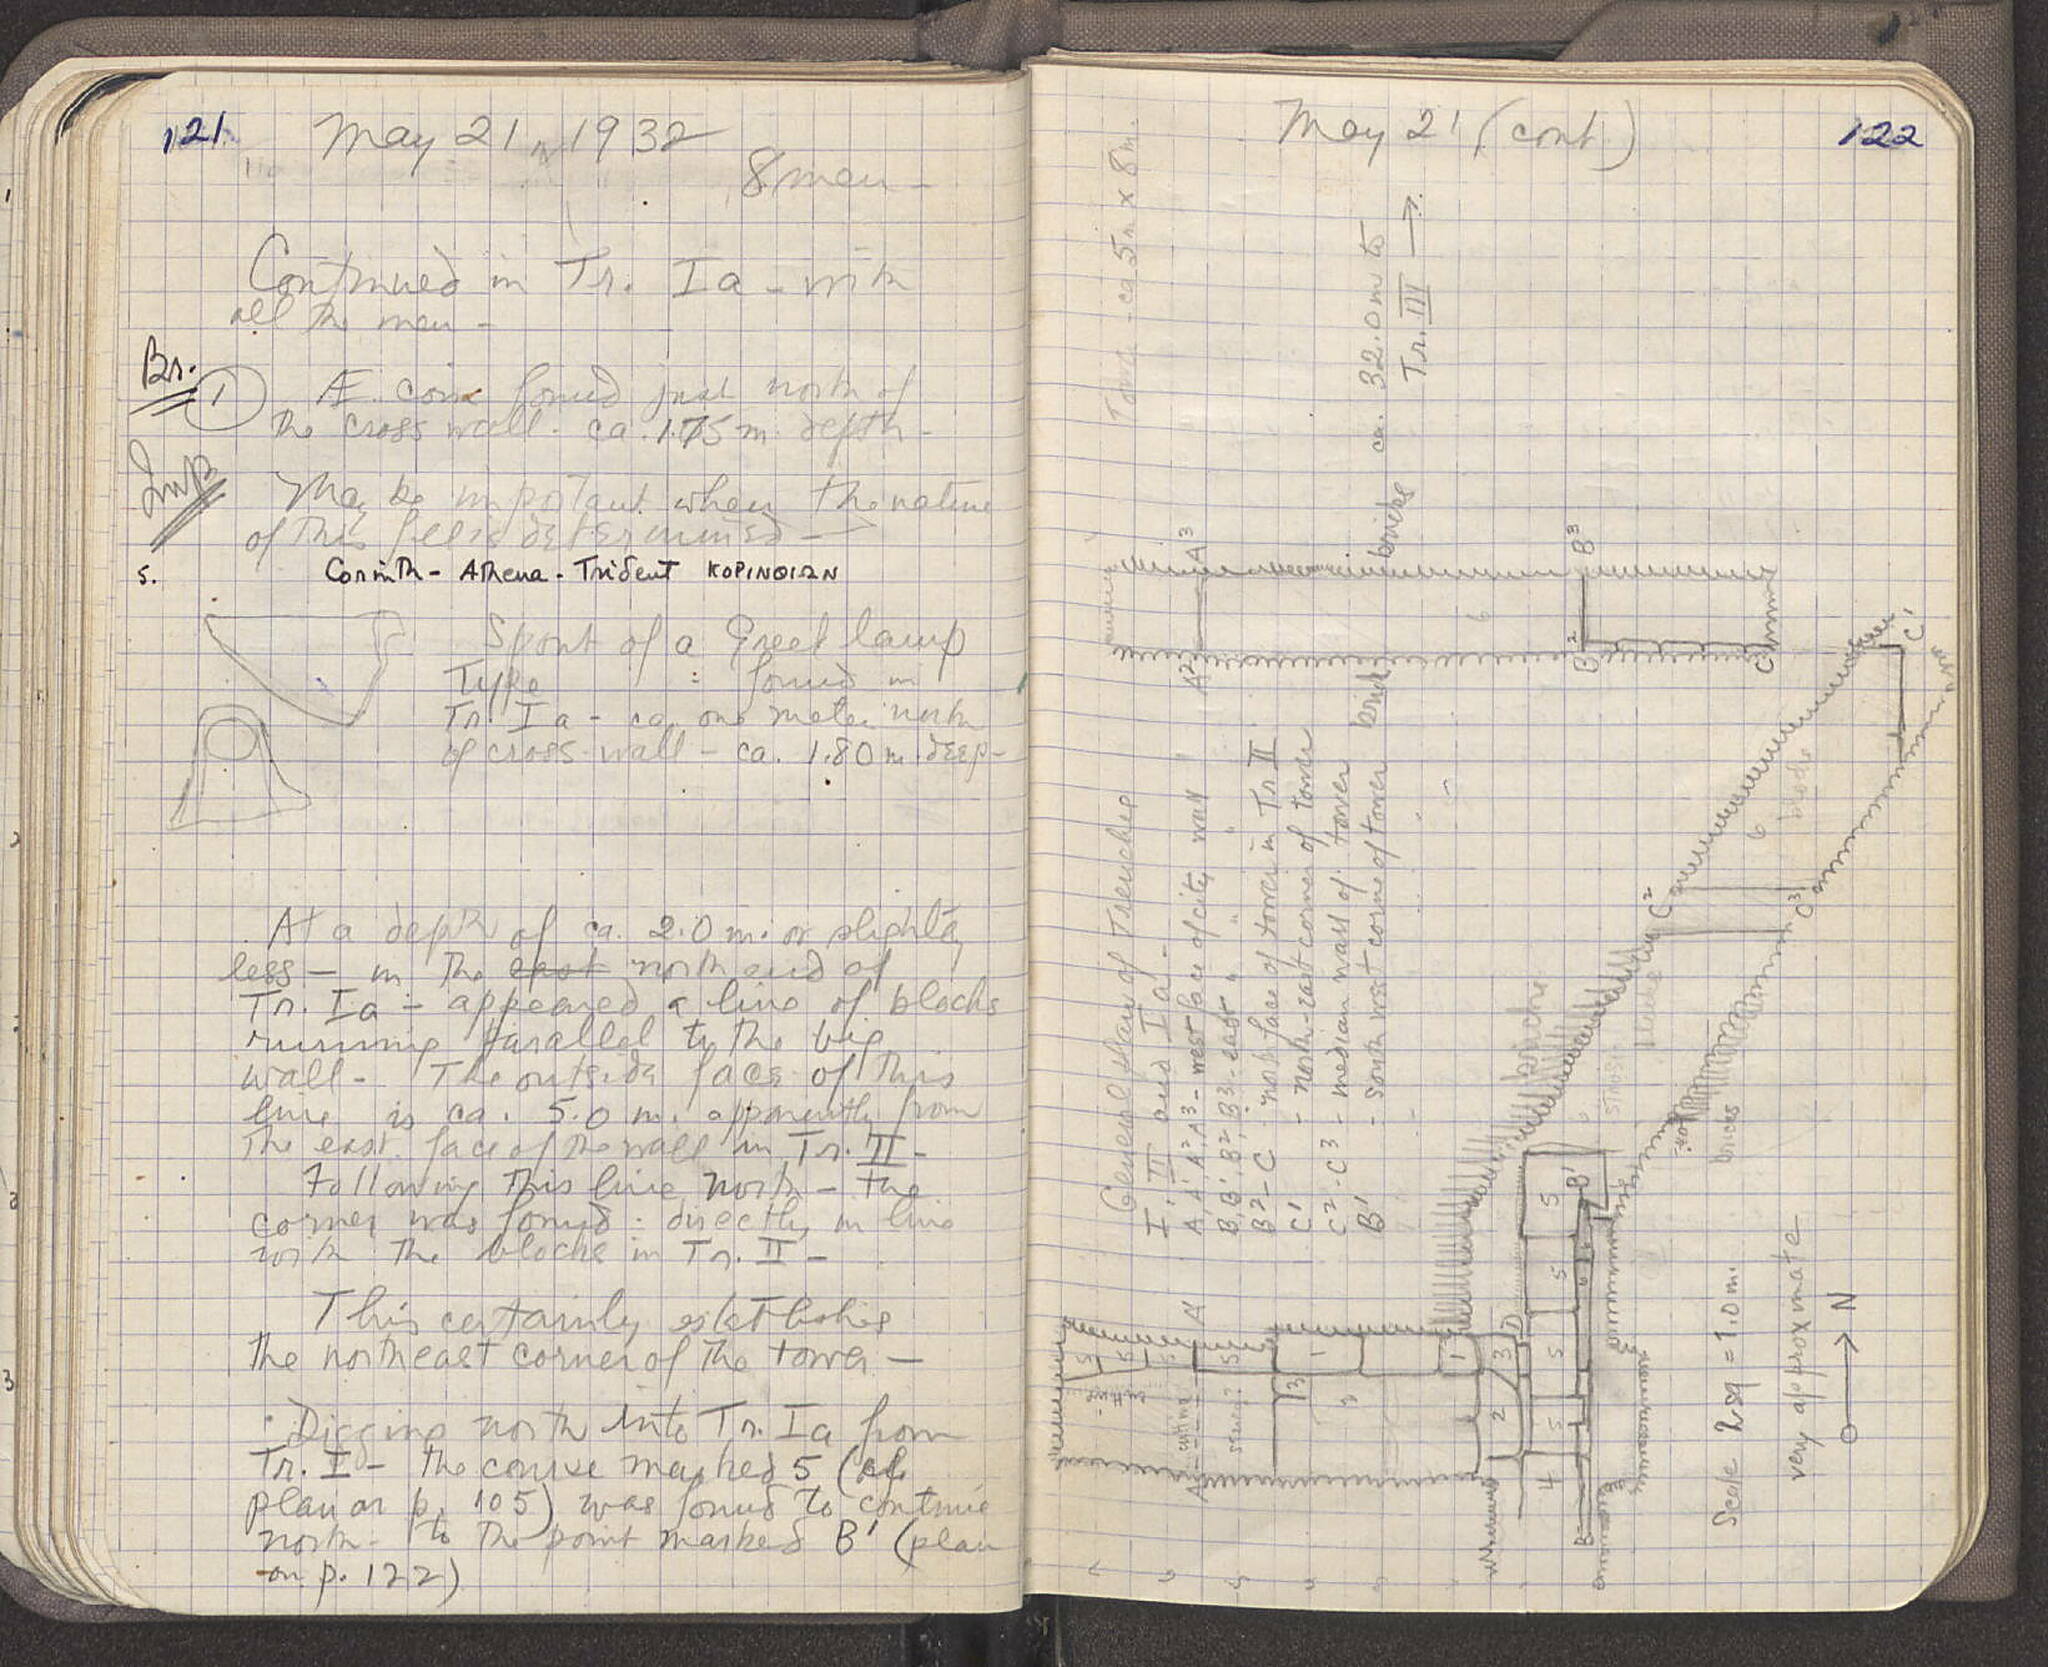 121.
May 21, 1932
8 men -
Continued in Tr. Ia - with
all the men -
Br.
1
Æ. coin found just north of
the cross wall - ca. 1.75 m. depth -
Imp
May be important when the nature
of this fill is determined -
5.
Corinth - Athena - Trident ΚΟΡΙΝΘΙΩΝ
Spout of a Greek lamp
Type : found in
Tr. Ia - ca. one meter north
of cross wall - ca. 1.80 m. deep -
At a depth of ca. 2.0 m. or slightly
less - in the east north end of
Tr. Ia - appeared a line of blocks
running parallel to the big
wall - The outside face of this
line is ca. 5.0 m. apparently from
the east face of the wall in Tr. II -
Following this line north - the
corner was found : directly in line
with the blocks in Tr. II -
This certainly establishes
the northeast corner of the tower -
Digging north into Tr. Ia from
Tr. I - the course marked 5 (cf.
plan on p. 105) was found to continue
north - to the point marked B' (plan
on p. 122)
May 21 (cont.)
122
Tower - ca 5m x 8m.
ca. 32.0 m to
Tr. III →
General plan of Trenches
I, II and Ia -
A, A', A², A³ - west face of city wall
B, B', B², B³ - east " " "
B² - C - north face of tower in Tr II
C' - north-east corner of tower
C² - C³ - median wall of tower
B' - south west corner of tower
A²
A³
bricks
brick
6
B²
B³
C
C'
6
blocks
C²
C³
bricks
bricks
A
A'
cutting
sewer?
5
5
5
5
1
1
3
3
2
3
D
4
5
5
5
5
B
B'
Scale 2 sq = 1.0 m.
very approximate
N